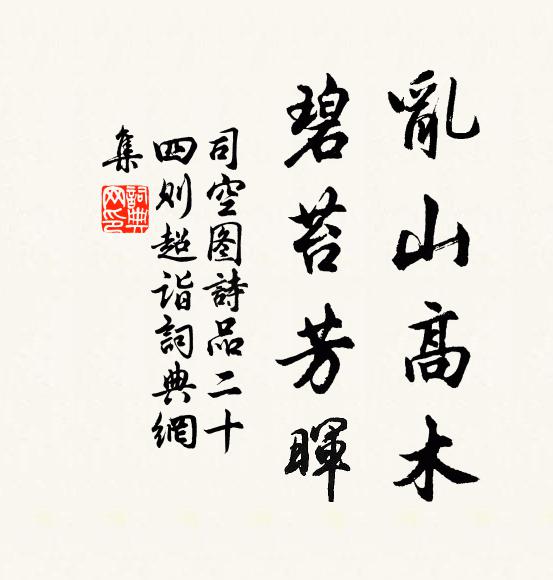 亂山高木
碧苔芳暉
司空圖詩品二十
四则超诣詞典網
集
詞典
网印